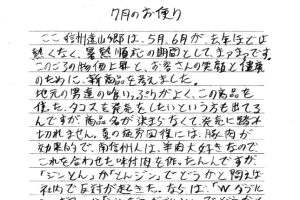 7月のお便り
ここ信州遠山郷は、5月、6月が、去年ほどは
熱くなく、暑熱順応の期間として、まずまずです。
このごろの物価上昇と、お客さんの笑顔と健康
のために、新商品を考えました。
地元の男達の唸り。ぷりがよく、この商品を
使った、タコスを発売をしたいという方も出てる
んですが、商品名が決まらなくて発売に踏み
切れません。夏の疲労回復には、豚肉が
効果的で、南信州人は、羊肉大好きなので
これを合わせた味付肉を作ったんですが
「ジンとん」か「とんジン」でどうかと問えば
社内で反対が起きた。ならば「Wダブル